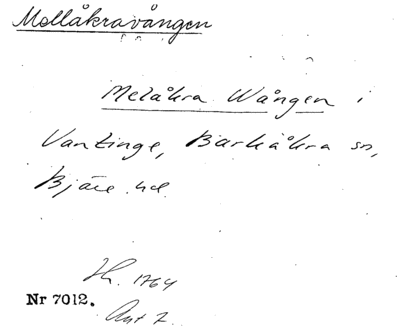 Mellåkravången
Melåkra Wången i
Vantinge, Barkåkra sn,
Bjäre hd.
Jh. 1764
Nr 7012.
Akt 7.